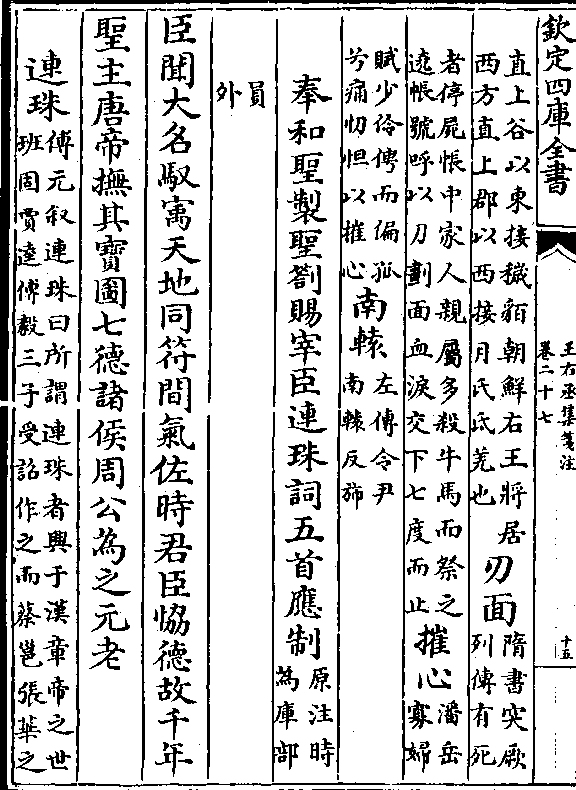 欽定四庫全書
王右丞集箋注
卷二十七
十五
直上谷以東接穢貊朝鮮右王將居
西方直上郡以西接月氏氐羌也
刃面
隋書突厥
列傳有死
者停屍帳中家人親屬多殺牛馬而祭之
遶帳號呼以刀劃面血淚交下七度而止
摧心
潘岳
寡婦
賦少伶俜而偏孤
兮痛忉怛以摧心
南轅
左傳令尹
南轅反斾
奉和聖製聖劄賜宰臣連珠詞五首應制
原注時
為庫部
員
外
臣聞大名馭㝢天地同符間氣佐時君臣恊德故千年
聖主唐帝撫其寶圖七德諸侯周公為之元老
連珠
傅元叙連珠曰所謂連珠者興于漢章帝之世
班固賈逵傅毅三子受詔作之而蔡邕張華之